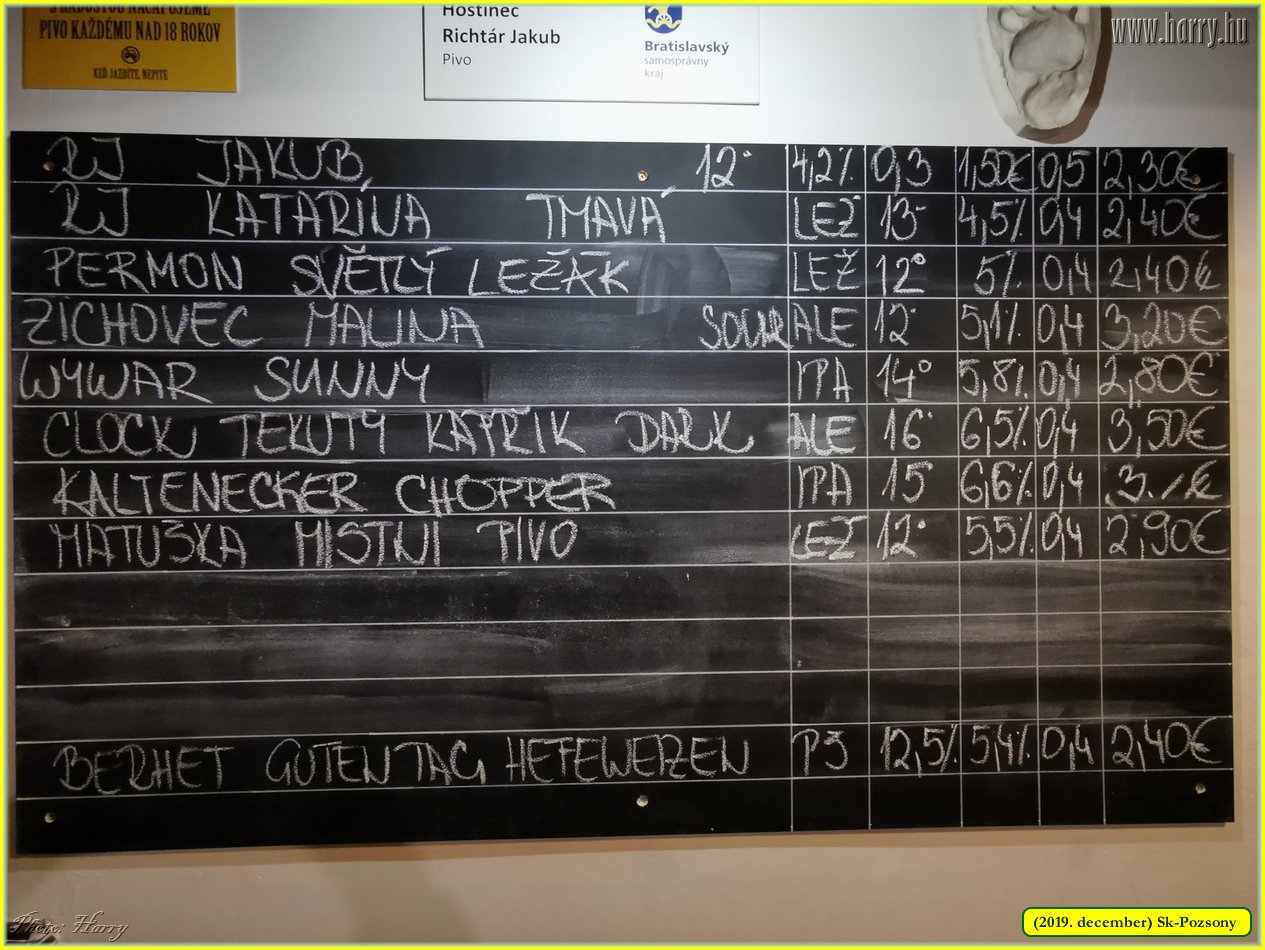 S RADOSŤOU NAČAPUJEME
PIVO KAŽDÉMU NAD 18 ROKOV
KEĎ JAZDÍTE, NEPITE
Hostinec
Richtár Jakub
Pivo
Bratislavský
samosprávny
kraj
www.harry.hu
RJ JAKUB 12° 4,2% 0,3 1,50€ 0,5 2,30€
RJ KATARÍNA TMAVÁ LEŽ 13° 4,5% 0,4 2,40€
PERMON SVĚTLÝ LEŽÁK LEŽ 12° 5% 0,4 2,40€
ZICHOVEC MALINA SOUR ALE 12° 5,1% 0,4 3,20€
WYWAR SUNNY IPA 14° 5,8% 0,4 2,80€
CLOCK TEKUTÝ KAPŘÍK DARK ALE 16° 6,5% 0,4 3,50€
KALTENECKER CHOPPER IPA 15° 6,6% 0,4 3.-€
MATUŠKA MÍSTNÍ PIVO LEŽ 12° 5,5% 0,4 2,90€
BERHET GUTEN TAG HEFEWEIZEN PŠ 12,5% 5,4% 0,4 2,40€
Photo: Harry
(2019. december) Sk-Pozsony